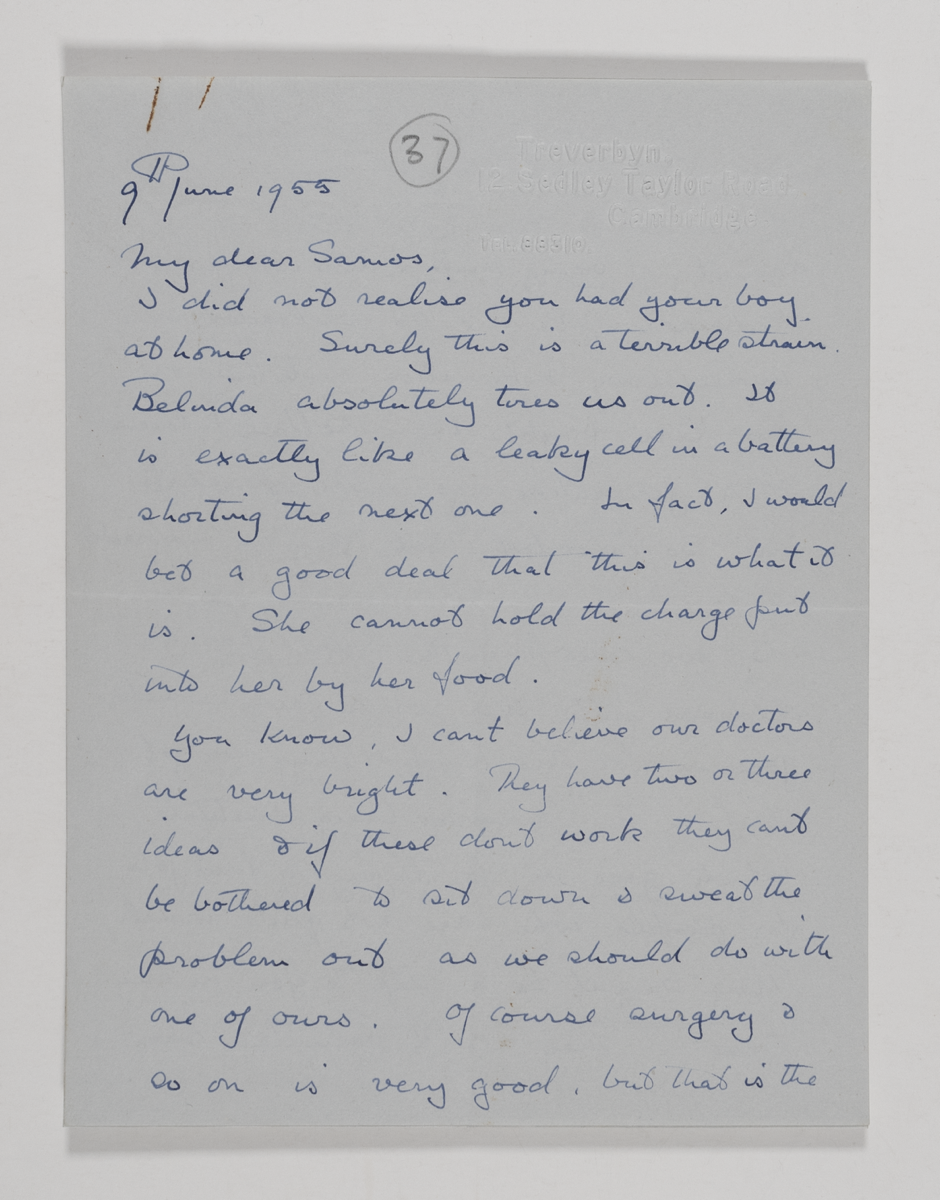 37
Treverbyn,
12 Sedley Taylor Road
Cambridge.
9th June 1955
My dear Samos,
I did not realise you had your boy
at home. Surely this is a terrible strain.
Belinda absolutely tires us out. It
is exactly like a leaky cell in a battery
shorting the next one. In fact, I would
bet a good deal that this is what it
is. She cannot hold the charge put
into her by her food.
You know, I cant believe our doctors
are very bright. They have two or three
ideas & if these dont work they cant
be bothered to sit down & sweat the
problem out as we should do with
one of ours. Of course surgery &
so on is very good, but that is the